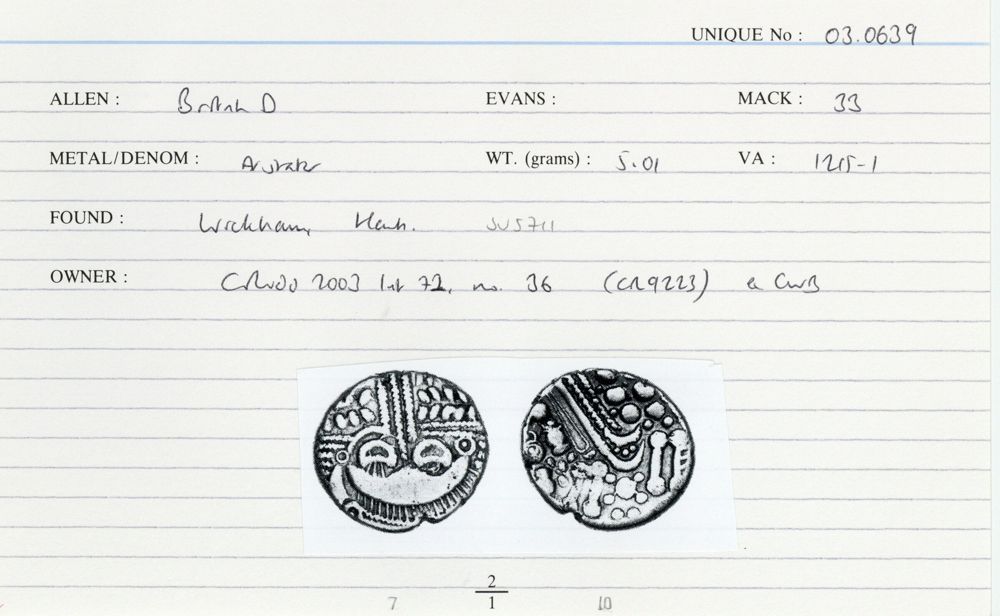 UNIQUE No : 03.0639
ALLEN : British D EVANS : MACK : 33
METAL/DENOM : WT. (grams) : 5.01 VA : 1215-1
FOUND : Wickham, Hants. SU5711
OWNER : 2003 list 72, no. 36 (CR9223) ex CWB
2
7 1 10